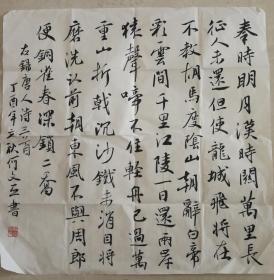 秦時明月漢時關萬里長
征人未還但使龍城飛將在
不教胡馬度陰山朝辭白帝
彩雲間千里江陵一日還兩岸
猿聲啼不住輕舟已過萬
重山折戟沉沙鐵未消自將
磨洗認前朝東風不與周郎
便銅雀春深鎖二喬
右錄唐人詩三首
丁酉年立秋何文玉書